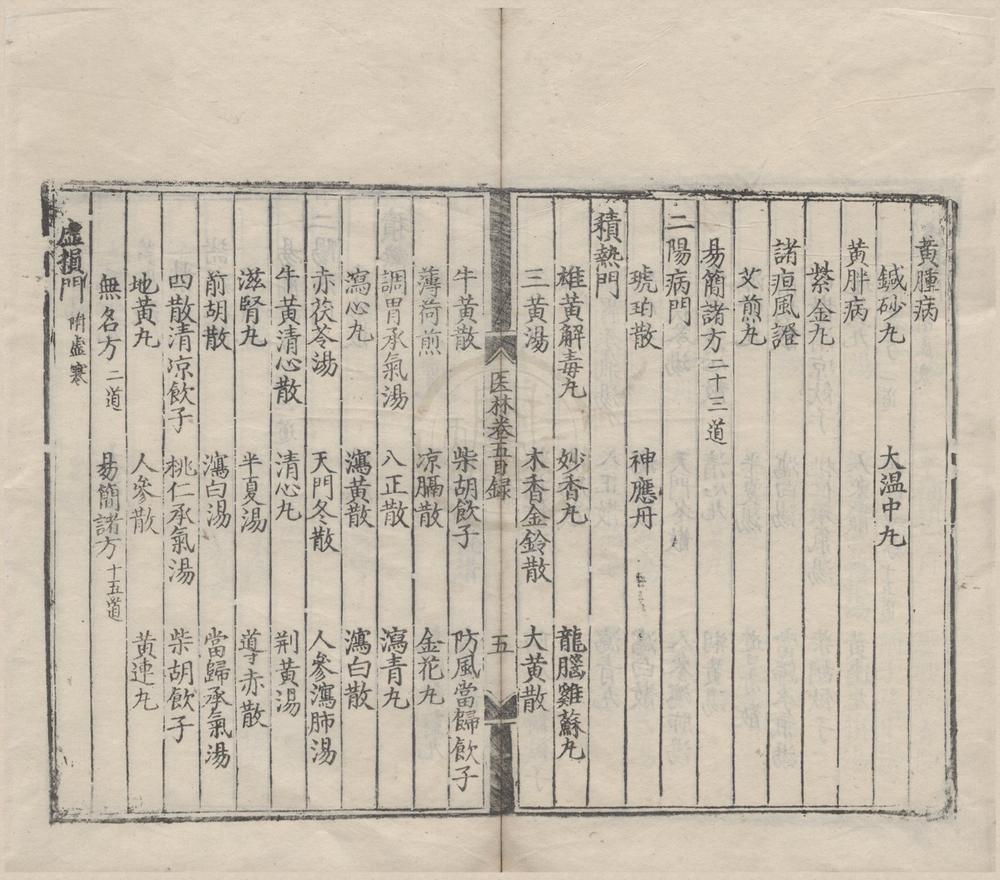 黃腫病
鍼砂丸　大温中丸
黃胖病
紫金丸
諸疸風證
艾煎丸
易簡諸方二十三道
二陽病門
琥珀散　神應丹
積熱門
雄黃解毒丸　妙香丸　龍腦雞蘇丸
三黃湯　木香金鈴散　大黃散
医林卷五目録　五
牛黃散　柴胡飲子　防風當歸飲子
薄荷煎　凉膈散　金花丸
調胃承氣湯　八正散　瀉青丸
瀉心丸　瀉黃散　瀉白散
赤茯苓湯　天門冬散　人參瀉肺湯
牛黃清心散　清心丸　荆黃湯
滋腎丸　半夏湯　導赤散
前胡散　瀉白湯　當歸承氣湯
四散清凉飲子　桃仁承氣湯　柴胡飲子
地黃丸　人參散　黃連丸
無名方二道　易簡諸方十五道
虛損門附虛寒